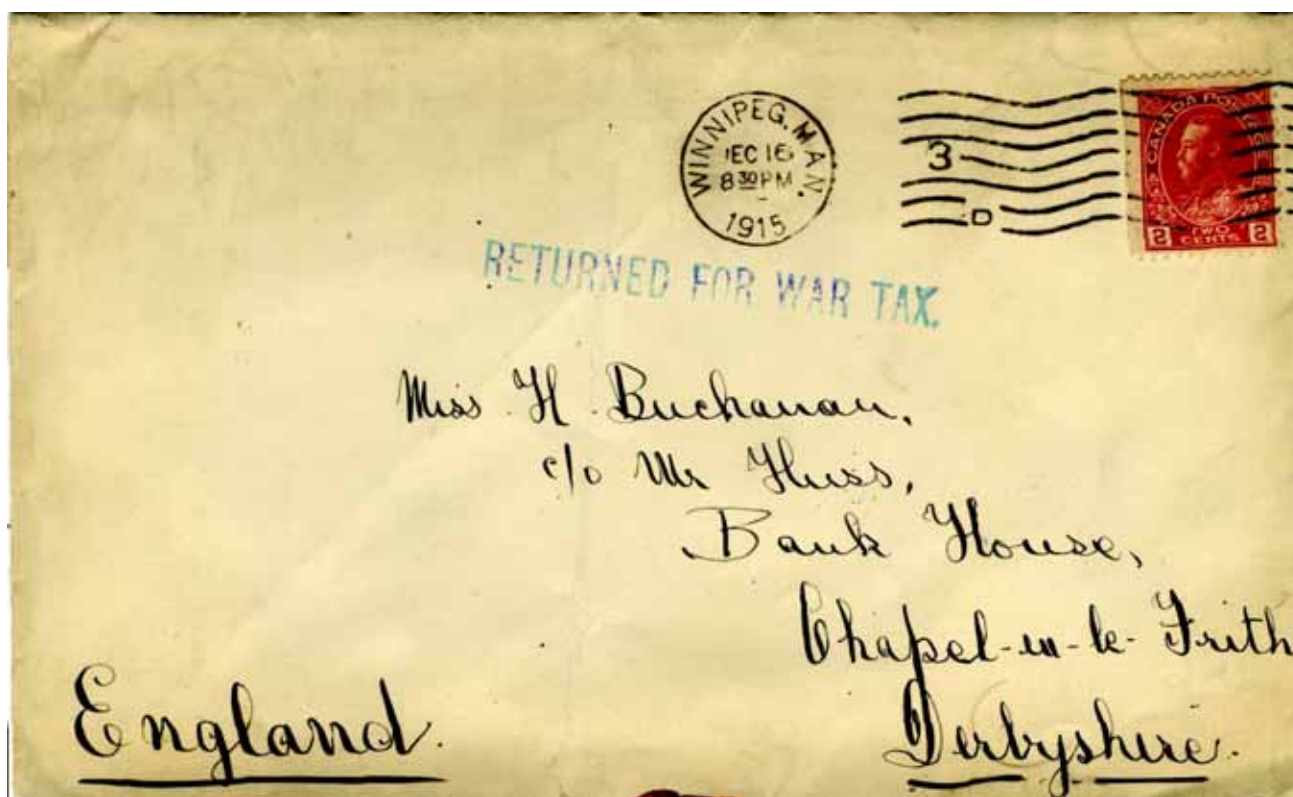 WINNIPEG, MAN.
DEC 16
8 30 PM
1915
3
D
CANADA POSTAGE
2 TWO CENTS 2
RETURNED FOR WAR TAX.
Miss H Buchanan,
c/o Mr Huss,
Bank House,
Chapel-en-le-Frith
Derbyshire.
England.